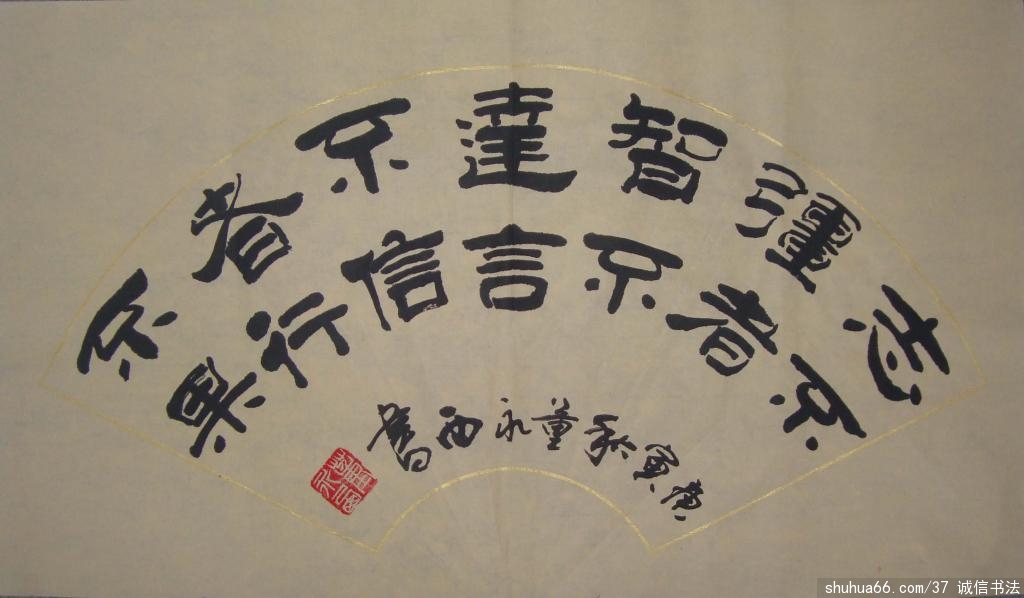 志不
彊者
智不
達言
不信
者行
不果
庚寅秋董永西書
shuhua66.com/37 诚信书法